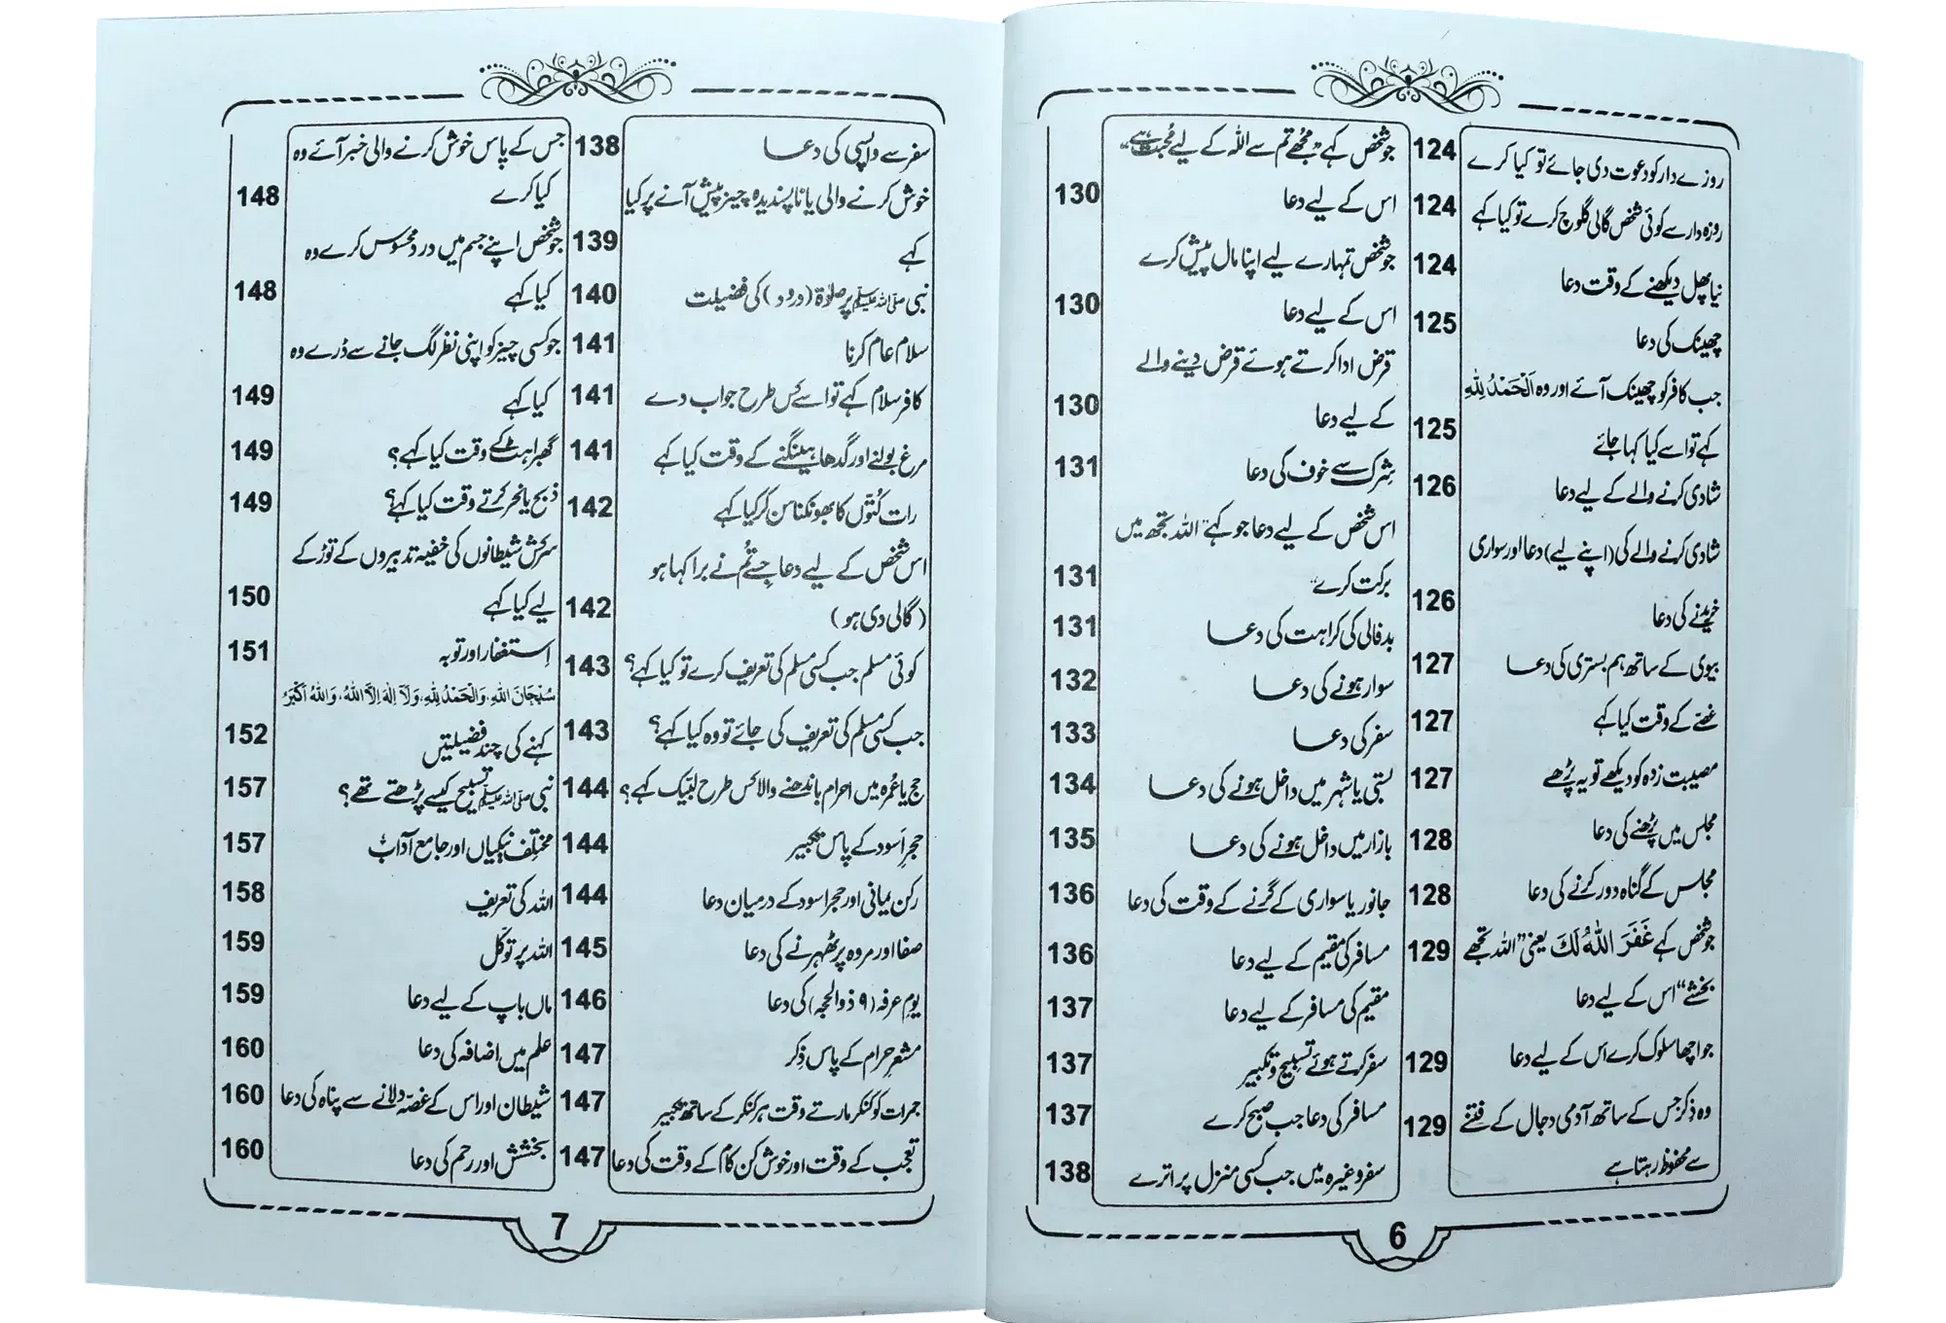 روزے دار کو دعوت دی جائے تو کیا کرے 124
روزہ دار سے کوئی شخص گالی گلوچ کرے تو کیا کہے 124
نیا پھل دیکھنے کے وقت دعا 124
چھینک کی دعا 125
جب کافر کو چھینک آئے اور وہ اَلْحَمْدُ لِلّٰهِ
کہے تو اسے کیا کہا جائے 125
شادی کرنے والے کے لیے دعا 126
شادی کرنے والے کی (اپنے لیے) دعا اور سواری
خریدنے کی دعا 126
بیوی کے ساتھ ہم بستری کی دعا 127
غصّے کے وقت کیا کہے 127
مصیبت زدہ کو دیکھے تو یہ پڑھے 127
مجلس میں پڑھنے کی دعا 128
مجلس کے گناہ دور کرنے کی دعا 128
جو شخص کہے غَفَرَ اللّٰهُ لَكَ یعنی ”اللہ تجھے 129
بخشے“ اس کے لیے دعا
جو اچھا سلوک کرے اس کے لیے دعا 129
وہ ذکر جس کے ساتھ آدمی دجال کے فتنے 129
سے محفوظ رہتا ہے
جو شخص کہے ”مجھے تم سے اللہ کے لیے مُحبت ہے“
اس کے لیے دعا 130
جو شخص تمہارے لیے اپنا مال پیش کرے
اس کے لیے دعا 130
قرض ادا کرتے ہوئے قرض دینے والے
کے لیے دعا 130
شِرک سے خوف کی دعا 131
اس شخص کے لیے دعا جو کہے ”اللہ تجھ میں
برکت کرے“ 131
بدفالی کی کراہت کی دعا 131
سوار ہونے کی دعا 132
سفر کی دعا 133
بستی یا شہر میں داخل ہونے کی دعا 134
بازار میں داخل ہونے کی دعا 135
جانور یا سواری کے گرنے کے وقت کی دعا 136
مسافر کی مقیم کے لیے دعا 136
مقیم کی مسافر کے لیے دعا 137
سفر کرتے ہوئے تسبیح و تکبیر 137
مسافر کی دعا جب صبح کرے 137
سفر وغیرہ میں جب کسی منزل پر اترے 138
6
سفر سے واپسی کی دعا 138
خوش کرنے والی یا ناپسندیدہ چیز پیش آنے پر کیا
کہے 139
نبی صلی اللہ علیہ وسلم پر صلوٰة (درود) کی فضیلت 140
سلام عام کرنا 141
کافر سلام کہے تو اسے کس طرح جواب دے 141
مرغ بولنے اور گدھا ہینگنے کے وقت کیا کہے 141
رات کُتّوں کا بھونکنا سن کر کیا کہے 142
اس شخص کے لیے دعا جسے تُم نے برا کہا ہو
(گالی دی ہو) 142
کوئی مسلم جب کسی مسلم کی تعریف کرے تو کیا کہے؟ 143
جب کسی مسلم کی تعریف کی جائے تو وہ کیا کہے؟ 143
حج یا عُمرہ میں احرام باندھنے والا کس طرح لبّیک کہے؟ 144
حجرِ اَسود کے پاس تکبیر 144
رکن یمانی اور حجر اسود کے درمیان دعا 144
صفا اور مروہ پر ٹھہرنے کی دعا 145
یومِ عرفہ (۹ ذوالحجہ) کی دعا 146
مشعرِ حرام کے پاس ذِکر 147
جمرات کو کنکر مارتے وقت ہر کنکر کے ساتھ تکبیر 147
تعجب کے وقت اور خوش کن کام کے وقت کی دعا 147
جس کے پاس خوش کرنے والی خبر آئے وہ
کیا کرے 148
جو شخص اپنے جسم میں درد محسوس کرے وہ
کیا کہے 148
جو کسی چیز کو اپنی نظر لگ جانے سے ڈرے وہ
کیا کہے 149
گھبراہٹ کے وقت کیا کہے؟ 149
ذبح یا نحر کرتے وقت کیا کہے؟ 149
سرکش شیطانوں کی خفیہ تدبیروں کے توڑ کے
لیے کیا کہے 150
اِستغفار اور توبہ 151
سُبْحَانَ اللهِ، وَالْحَمْدُ لِلّٰهِ، وَلَآ اِلٰهَ اِلَّا اللهُ، وَاللهُ اَكْبَرُ
کہنے کی چند فضیلتیں 152
نبی صلی اللہ علیہ وسلم تسبیح کیسے پڑھتے تھے؟ 157
مختلف نیکیاں اور جامع آداب 157
اللہ کی تعریف 158
اللہ پر توکّل 159
ماں باپ کے لیے دعا 159
علم میں اضافہ کی دعا 160
شیطان اور اس کے غصّہ دلانے سے پناہ کی دعا 160
بخشش اور رحم کی دعا 160
7